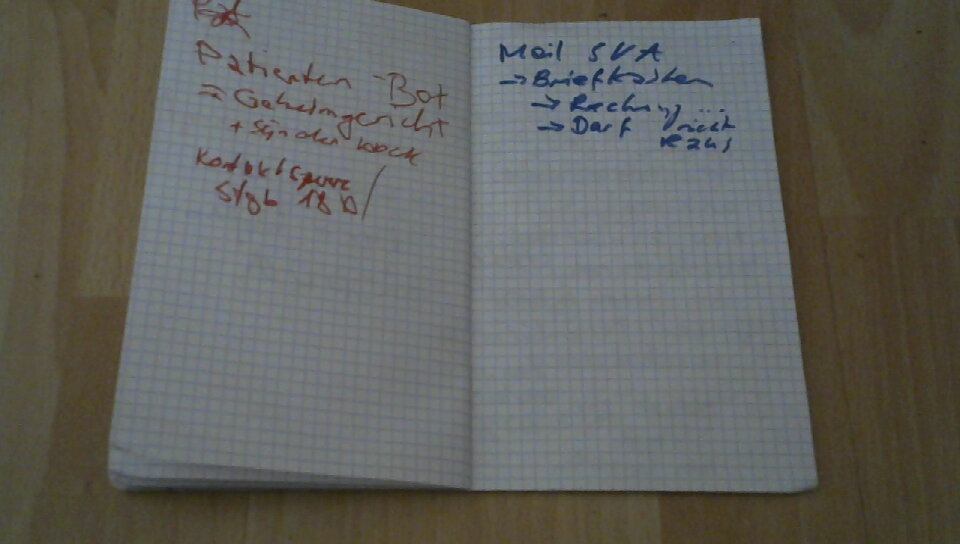 Patienten-Bot
→ Geheimgericht
+ Sündenbock
Kontaktsperre
Stgb 180
Mail SVA
→ Briefkasten
→ Rechnung...
→ Darf nicht